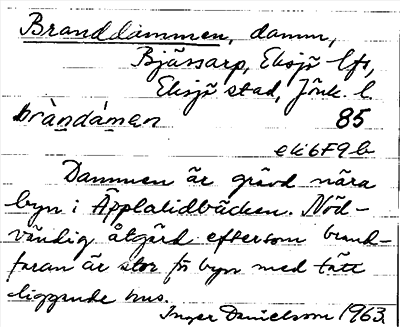 Branddammen, damm,
Bjässarp, Eksjö lfs,
Eksjö stad, Jönk. l.
bràndámen 85
ek6F9b
Dammen är grävd nära
byn i Äpplalidbäcken. Nöd-
vändig åtgärd eftersom brand-
faran är stor för byn med tätt
liggande hus.
Inger Danielsson 1963.